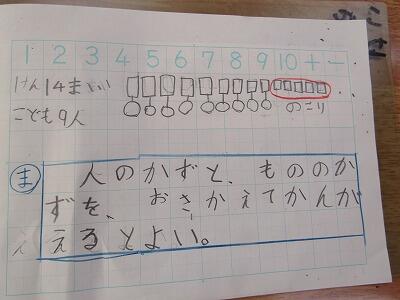 1 2 3 4 5 6 7 8 9 10 + −
けん14まい
こども9人
のこり
ま
人のかずと、もののか
ずを、おきかえてかんが
えるとよい。